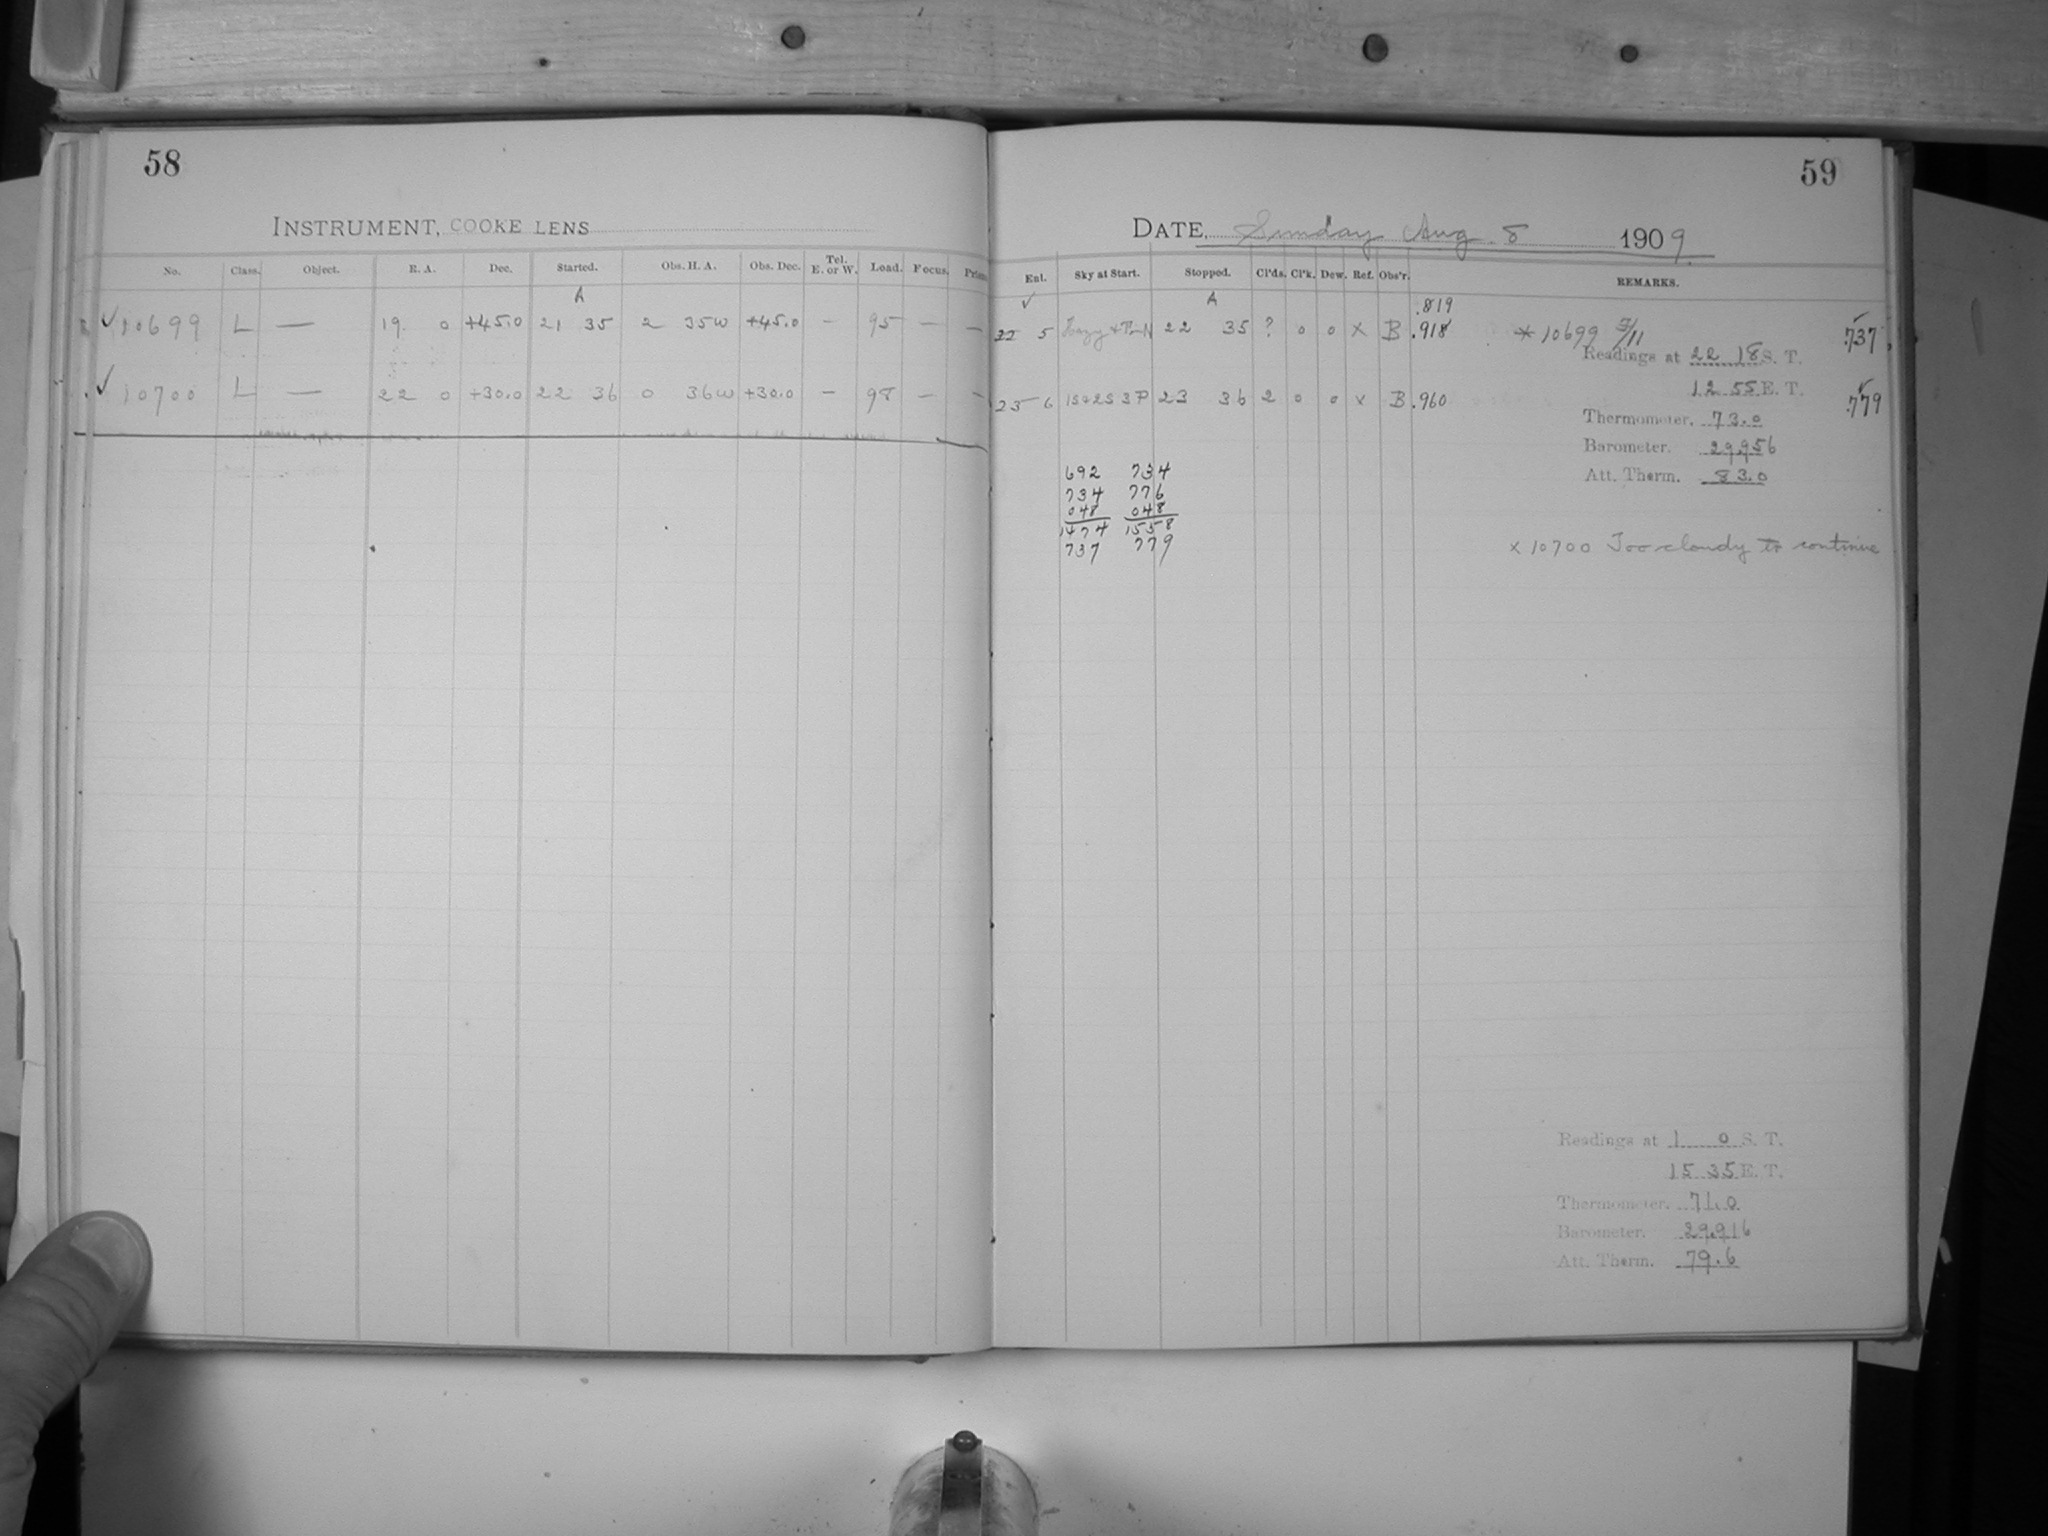 58
INSTRUMENT, COOKE LENS
No. Class. Object. R. A. Dec. Started. Obs. H. A. Obs. Dec. Tel. E. or W. Load. Focus. Prism
A
✓ 10699 L — 19 0 +45.0 21 35 2 35W +45.0 — 95 — —
✓ 10700 L — 22 0 +30.0 22 36 0 36W +30.0 — 98 — —
59
DATE, Sunday Aug. 8 1909
Ent. Sky at Start. Stopped. Cl'ds. Cl'k. Dew. Ref. Obs'r. REMARKS.
✓ A .819
5 Hazy + 22 35 ? 0 0 X B .918 * 10699 3/11 .737
Readings at 22 18 S. T.
12 55 E. T.
23 6 1S 2S 3P 23 36 2 0 0 x B .960 .779
Thermometer. 73.0
Barometer. 29.956
Att. Therm. 83.0
692 734
734 776
048 048
1474 1558
737 779
x 10700 Too cloudy to continue
Readings at 1 0 S. T.
15 35 E. T.
Thermometer. 71.0
Barometer. 29.916
Att. Therm. 79.6